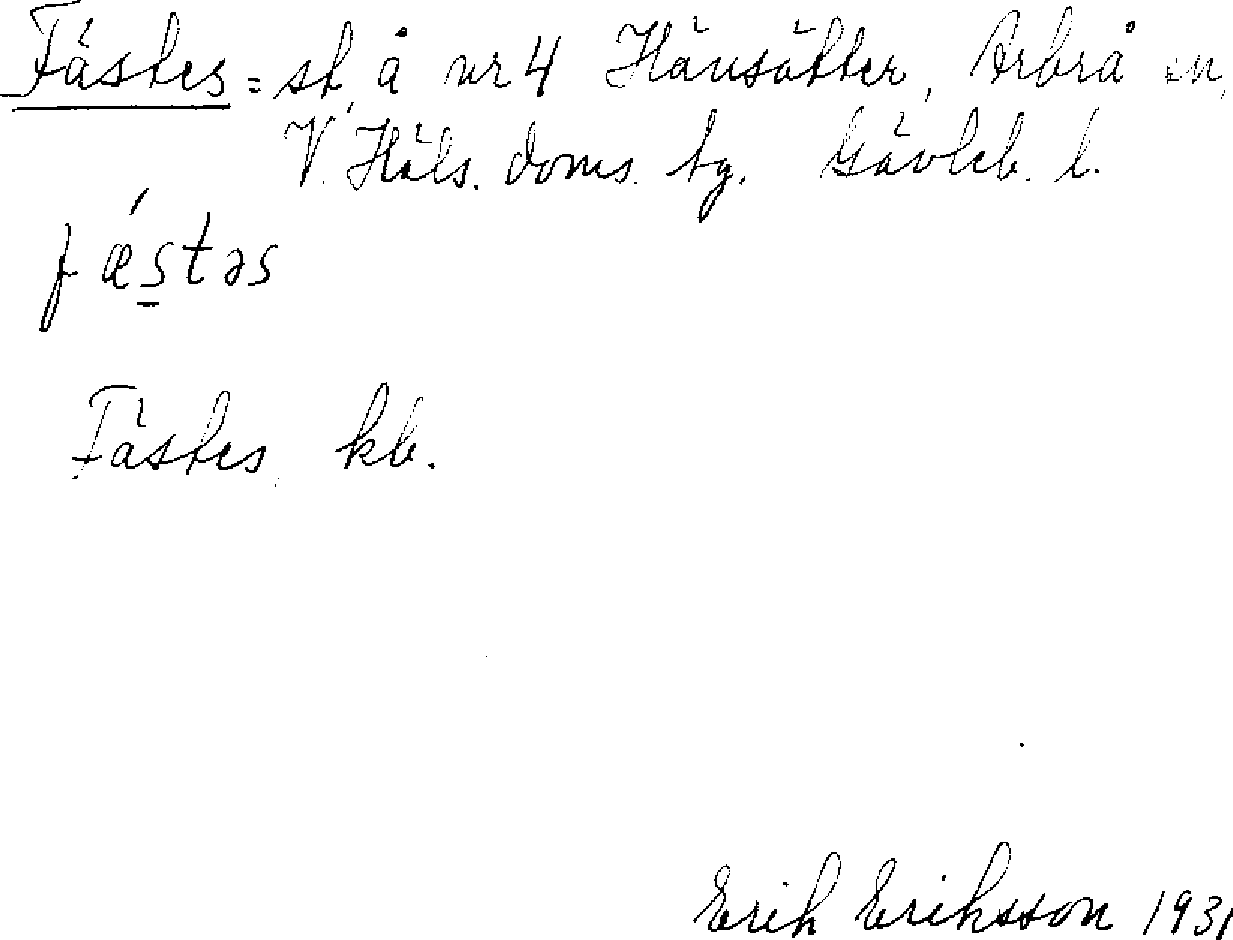 Fästes = st, å nr 4 Hänsätter, Arbrå sn,
V. Häls. doms. tg. Gävleb. l.
fǽstəs
Fästes, kb.
Erik Eriksson 1931